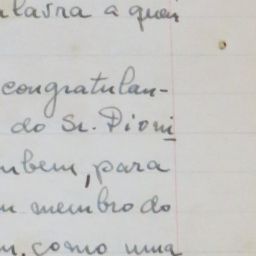 alavra a quem
congratulan-
do Sr. Dioni
mbem, para
m membro do
m, como uma